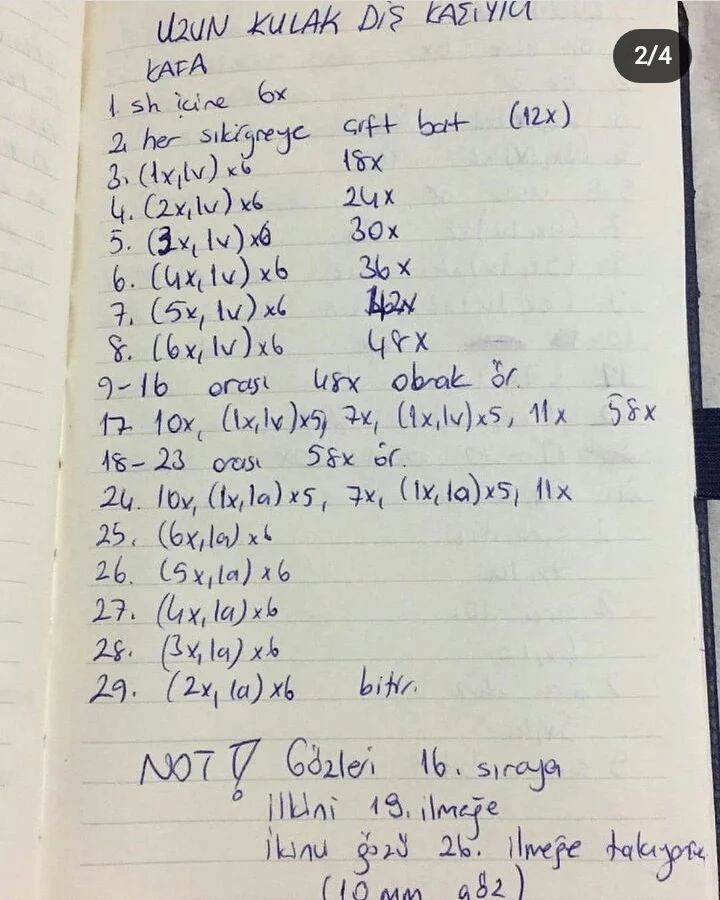 UZUN KULAK DİŞ KAŞIYICI
2/4
KAFA
1. sh içine 6x
2. her sık iğneye çift bat (12x)
3. (1x,1v)x6 18x
4. (2x,1v)x6 24x
5. (3x,1v)x6 30x
6. (4x,1v)x6 36x
7. (5x,1v)x6 42x
8. (6x,1v)x6 48x
9-16 arası 48x olarak ör.
17. 10x, (1x,1v)x5, 7x, (1x,1v)x5, 11x 58x
18-23 arası 58x ör.
24. 10x, (1x,1a)x5, 7x, (1x,1a)x5, 11x
25. (6x,1a)x6
26. (5x,1a)x6
27. (4x,1a)x6
28. (3x,1a)x6
29. (2x,1a)x6 bitir.
NOT! Gözleri 16. sıraya
ilkini 19. ilmeğe
ikinci gözü 26. ilmeğe takıyoruz
(10 mm göz)